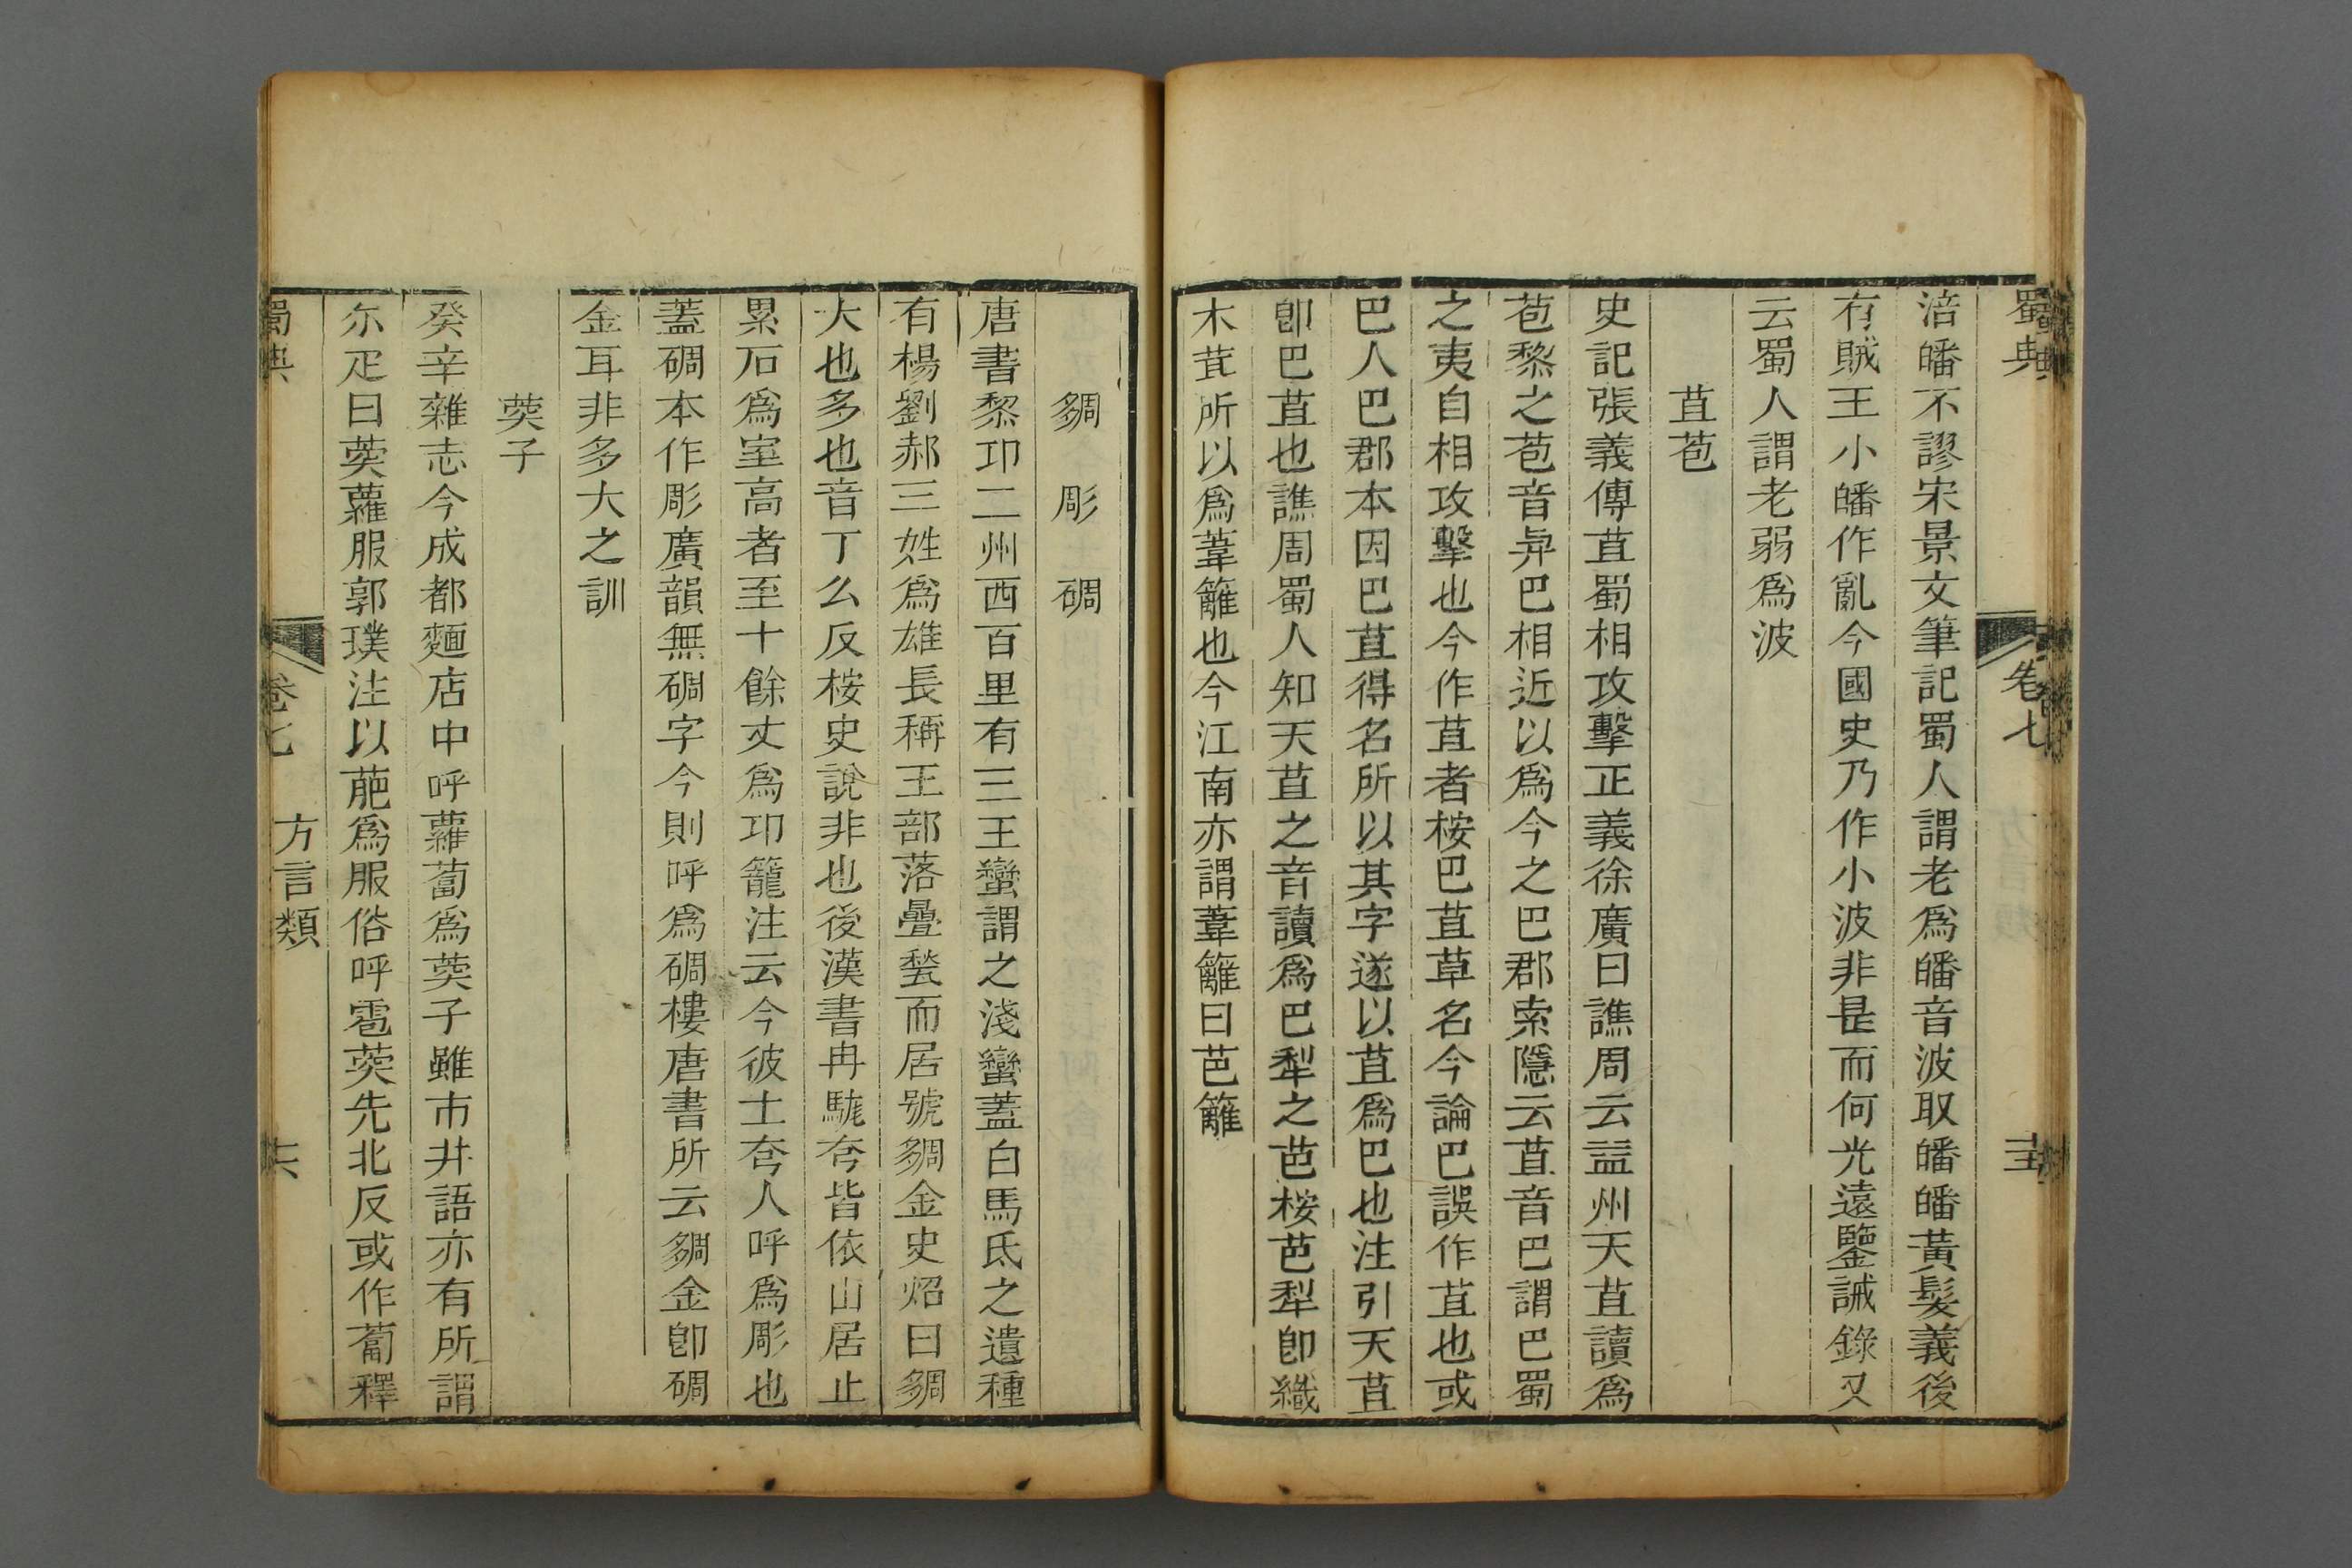 蜀典
卷七
涪皤不謬宋景文筆記蜀人謂老爲皤音波取皤皤黃髮義後
有賊王小皤作亂今國史乃作小波非是而何光遠鑒誡錄又
云蜀人謂老弱爲波
苴苞
史記張義傳苴蜀相攻擊正義徐廣曰譙周云益州天苴讀爲
苞黎之苞音與巴相近以爲今之巴郡索隱云苴音巴謂巴蜀
之夷自相攻擊也今作苴者桉巴苴草名今論巴誤作苴也或
巴人巴郡本因巴苴得名所以其字遂以苴爲巴也注引天苴
卽巴苴也譙周蜀人知天苴之音讀爲巴犁之芭桉芭犁卽織
木葺所以爲葦籬也今江南亦謂葦籬曰芭籬
䂏 彫 碉
唐書黎邛二州西百里有三王蠻謂之淺蠻蓋白馬氐之遺種
有楊劉郝三姓爲雄長稱王部落疊甃而居號䂏金史炤曰䂏
大也多也音丁么反桉史說非也後漢書冉駹夸皆依山居止
累石爲室高者至十餘丈爲邛籠注云今彼土夸人呼爲彫也
蓋碉本作彫廣韻無碉字今則呼爲碉樓唐書所云䂏金卽碉
金耳非多大之訓
葖子
癸辛雜志今成都麵店中呼蘿蔔爲葖子雖市井語亦有所謂
尒疋曰葖蘿服郭璞注以葩爲服俗呼雹葖先北反或作蔔釋
蜀典
卷七
方言類